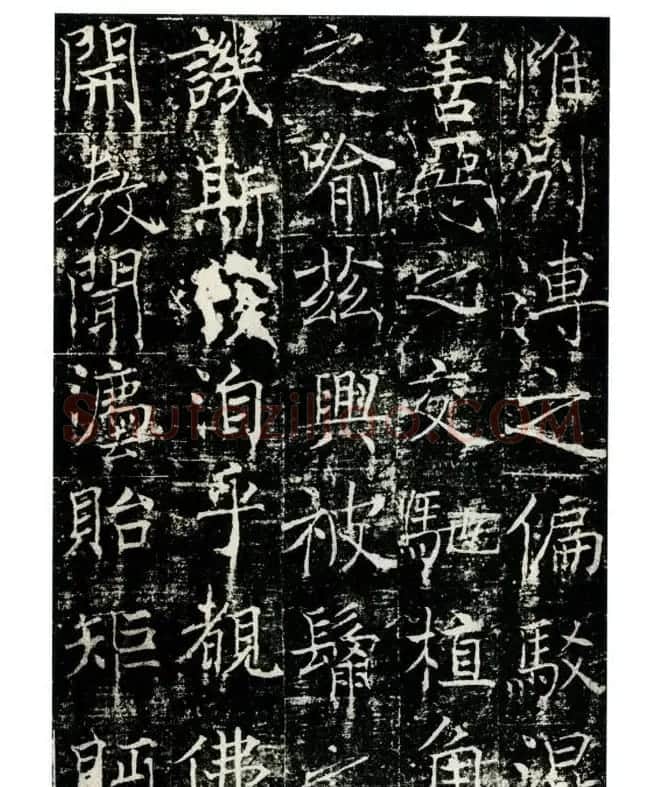 惟別之偏駁混
善惡之交馳植角
之喻茲興被鬢之
譏斯洎乎覩佛
開教聞灋貽矩
Shufaziliao.COM